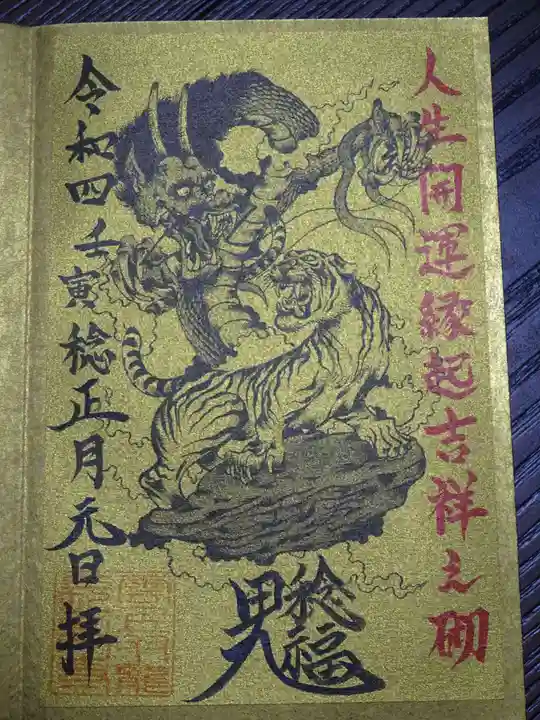 人生開運縁起吉祥之砌
稔福
令和四壬寅稔正月元日拝